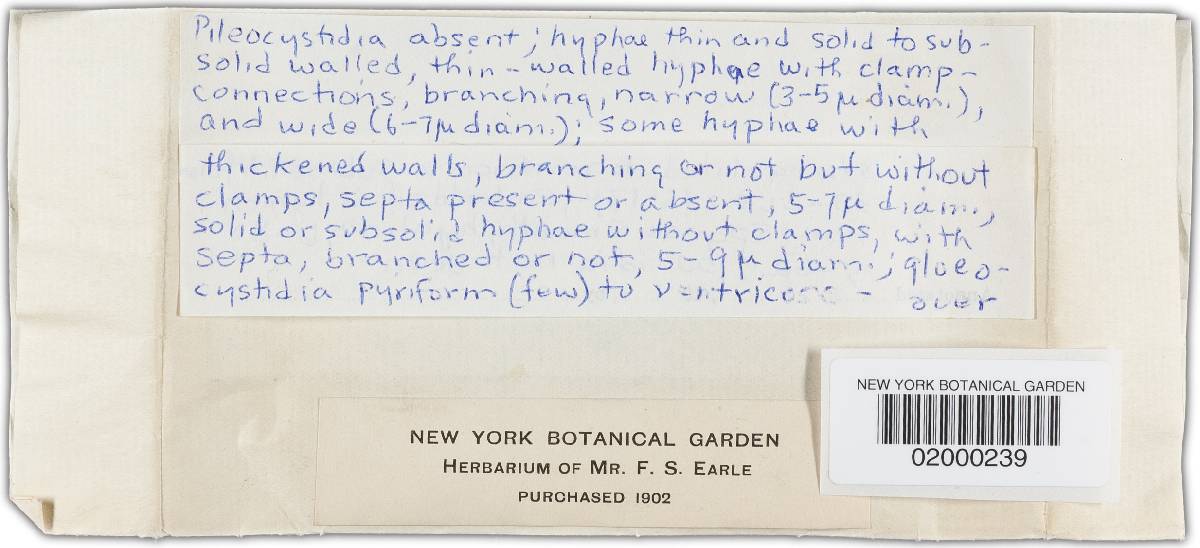 Pileocystidia absent; hyphae thin and solid to sub-
solid walled, thin-walled hyphae with clamp-
connections, branching, narrow (3-5 µ diam.),
and wide (6-7µ diam.); some hyphae with
thickened walls, branching or not but without
clamps, septa present or absent, 5-7µ diam.,
solid or subsolid hyphae without clamps, with
septa, branched or not, 5-9µ diam.; gloeo-
cystidia pyriform (few) to ventricose - over
NEW YORK BOTANICAL GARDEN
02000239
NEW YORK BOTANICAL GARDEN
HERBARIUM OF MR. F. S. EARLE
PURCHASED 1902